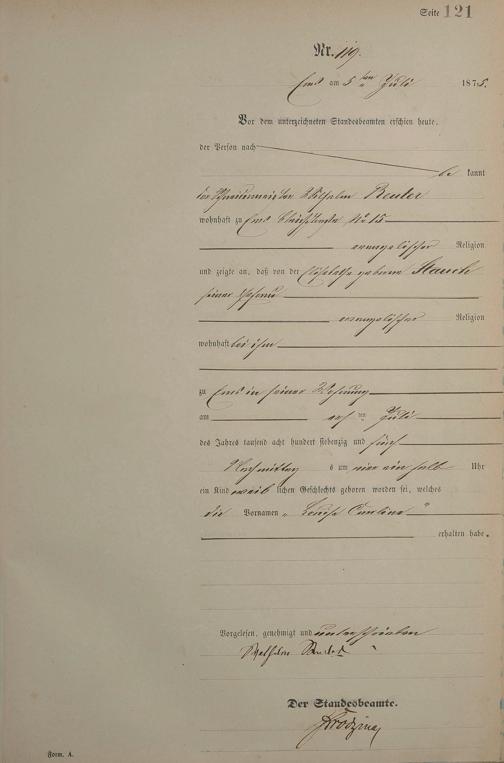 Seite 121
Nr. 119.
Ems am 5 ten Juli 1875.
Vor dem unterzeichneten Standesbeamten erschien heute,
der Person nach
be kannt
der Schreinermeister Wilhelm Reuter
wohnhaft zu Ems No 15
evangelischer Religion
und zeigte an, daß von der Elisabetha geborene Stauch
seiner Ehefrau
evangelischer Religion
wohnhaft bei ihm
zu Ems in seiner Wohnung
am ten Juli
des Jahres tausend acht hundert siebenzig und fünf
Nachmittags um vier ein halb Uhr
ein Kind weib lichen Geschlechts geboren worden sei, welches
die Vornamen „
erhalten habe.
Vorgelesen, genehmigt und unterschrieben
Wilhelm
Der Standesbeamte.
Form. A.